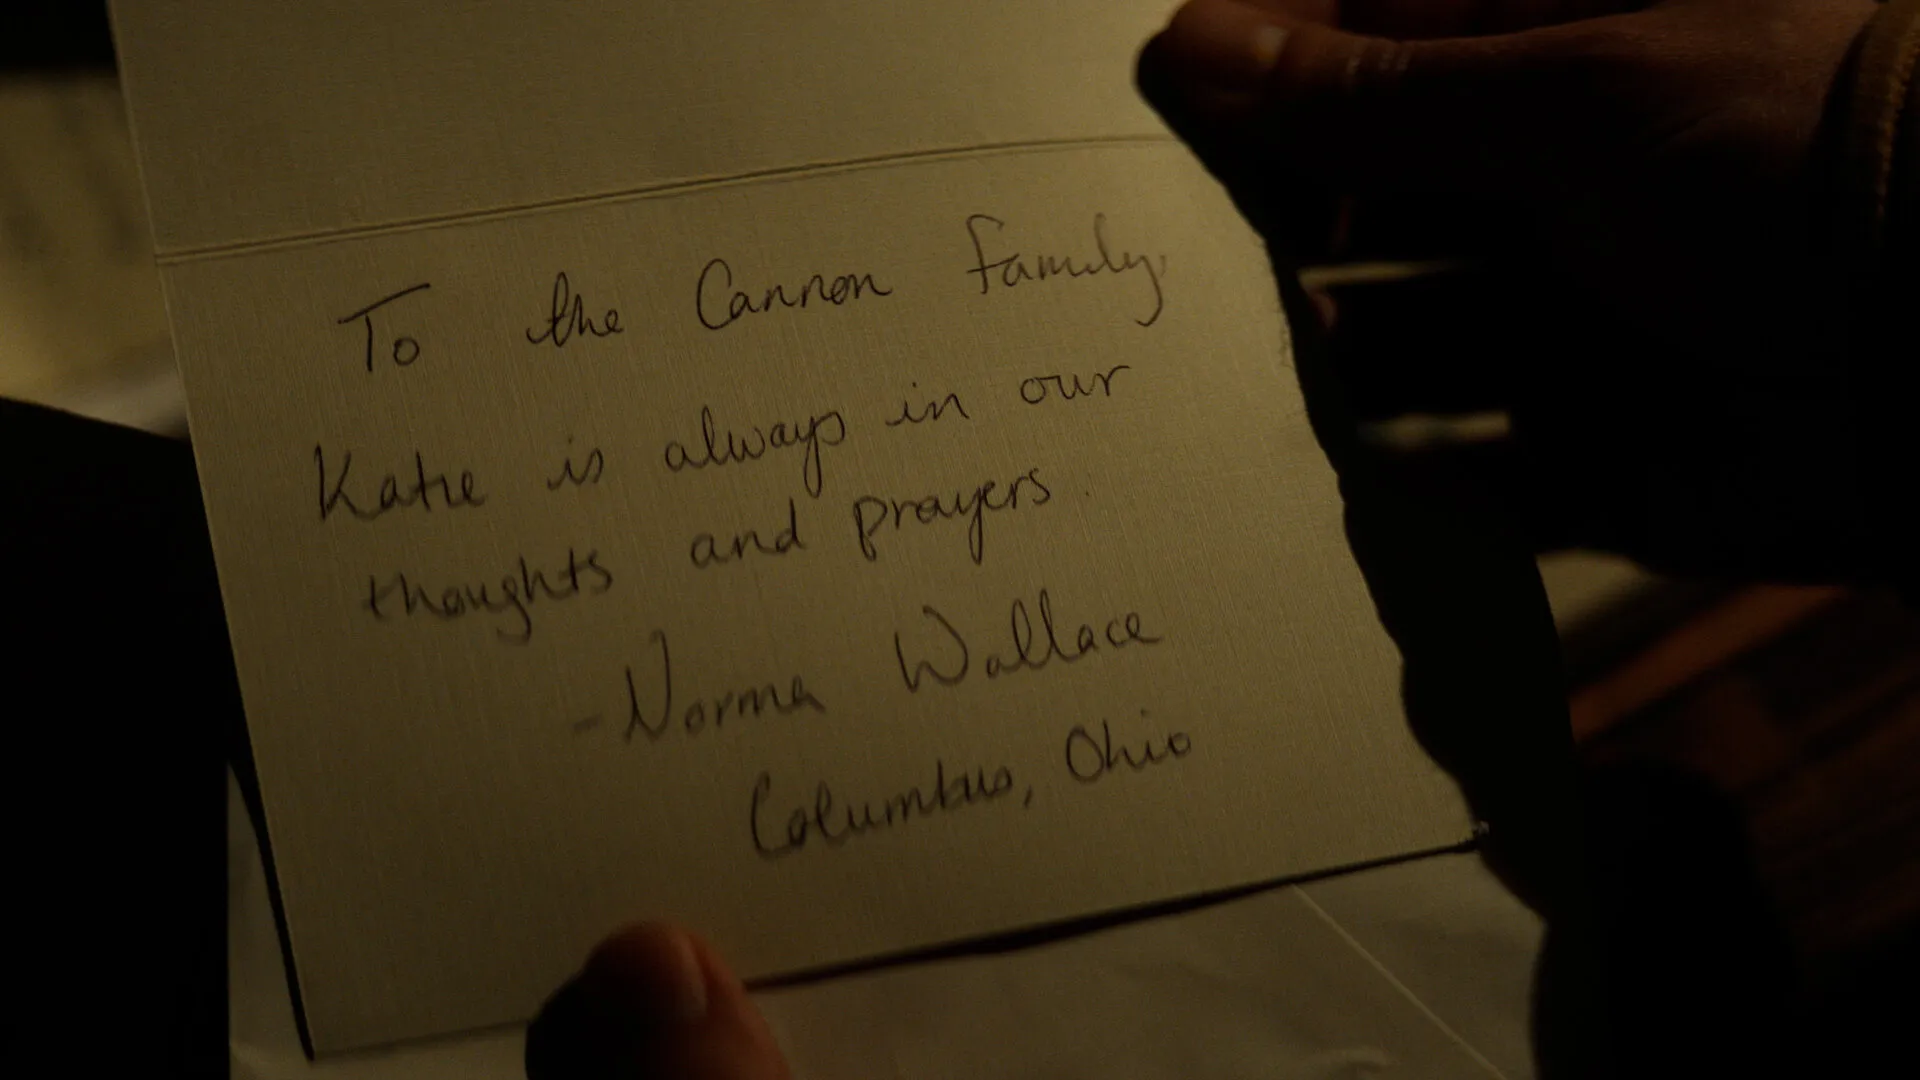 To the Cannon family,
Katie is always in our
thoughts and prayers.
-Norma Wallace
Columbus, Ohio